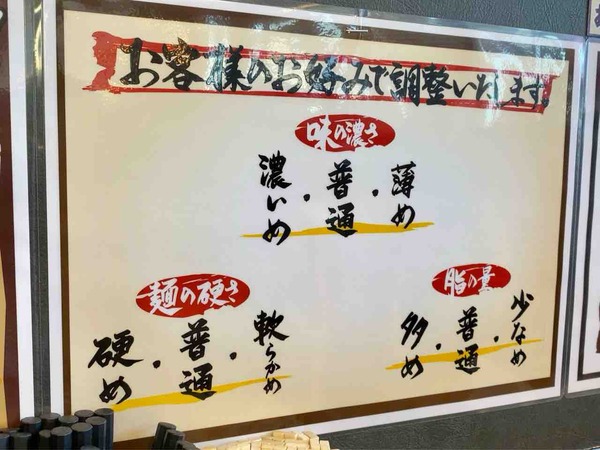 お客様のお好みで調整いたします。
味の濃さ
濃いめ・普通・薄め
麺の硬さ
硬め・普通・軟らかめ
脂の量
多め・普通・少なめ